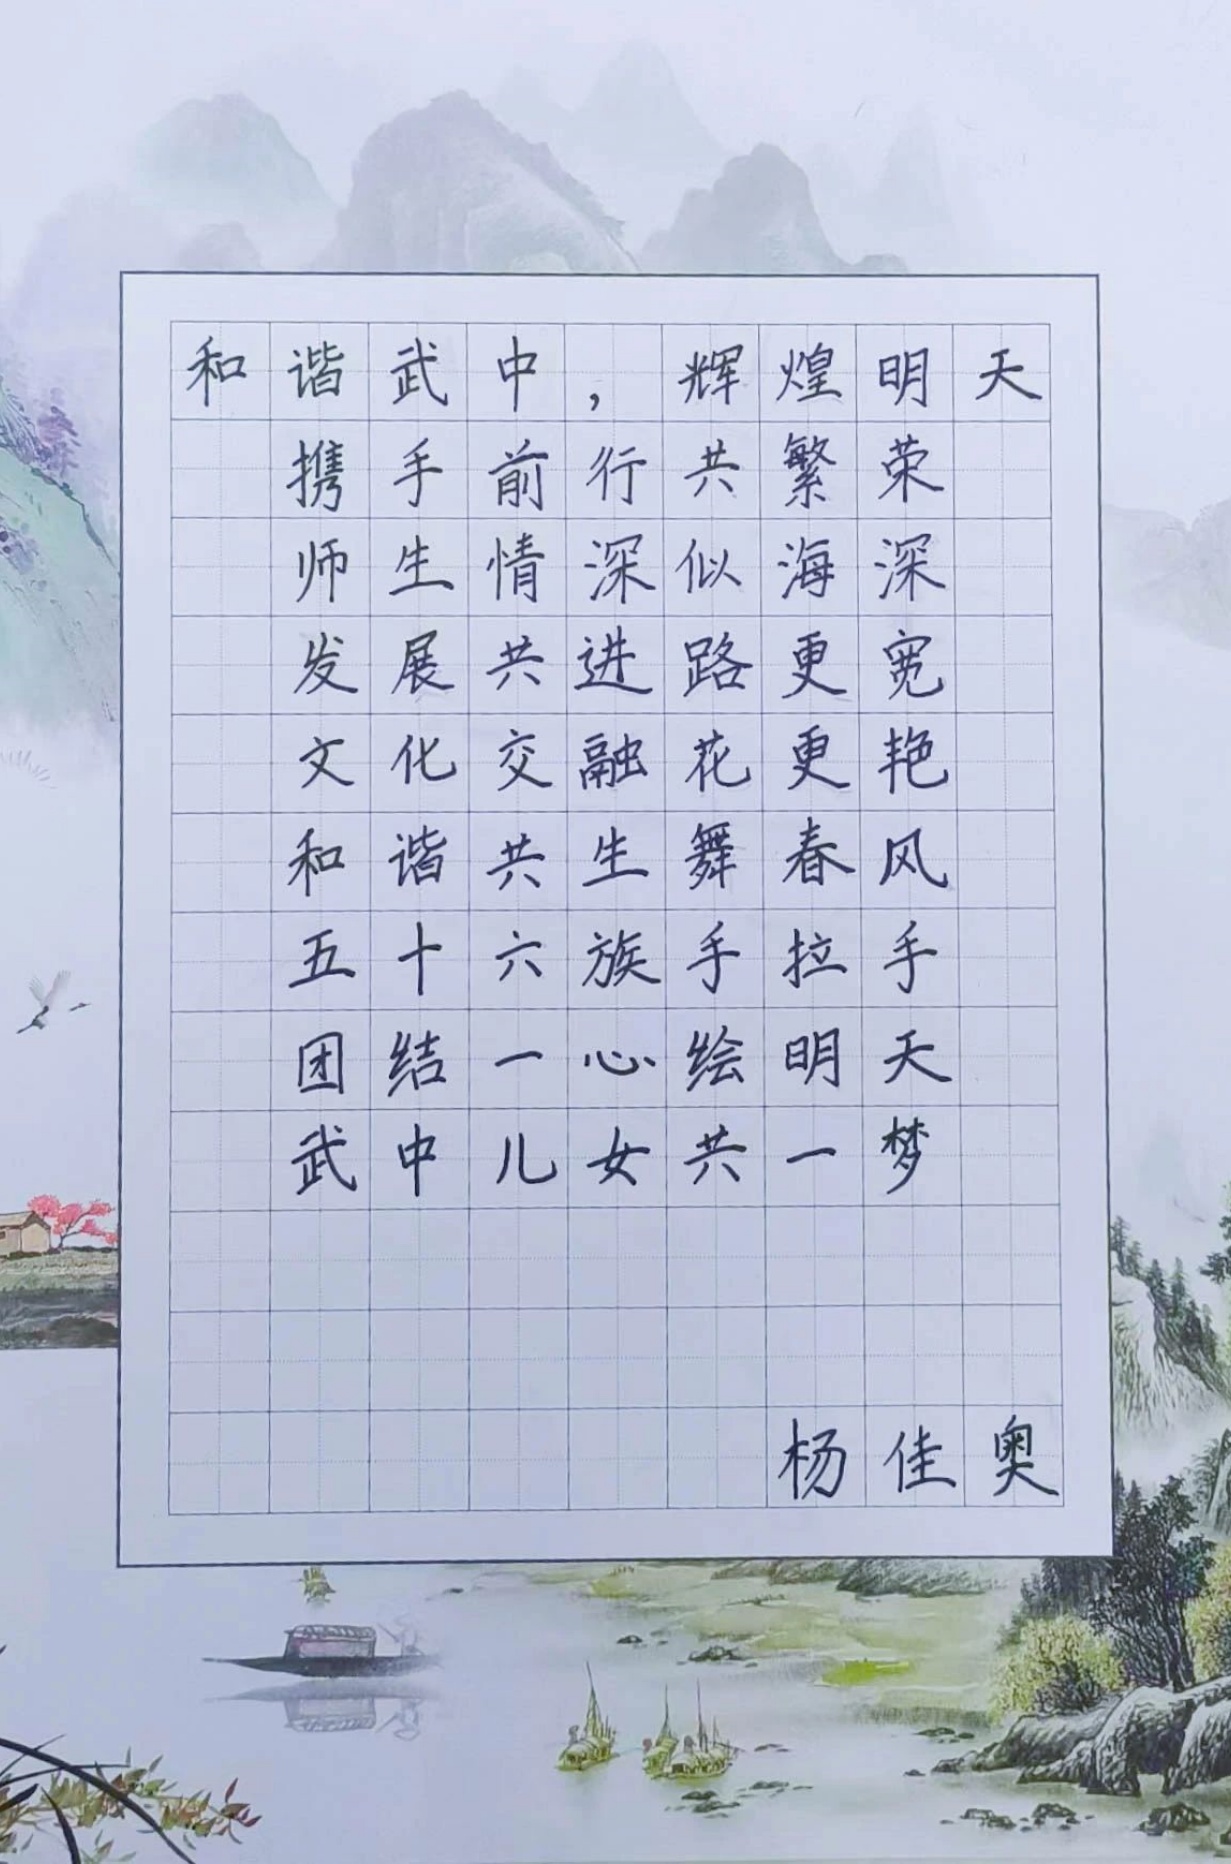 和谐武中，辉煌明天
携手前行共繁荣
师生情深似海深
发展共进路更宽
文化交融花更艳
和谐共生舞春风
五十六族手拉手
团结一心绘明天
武中儿女共一梦
杨佳奥